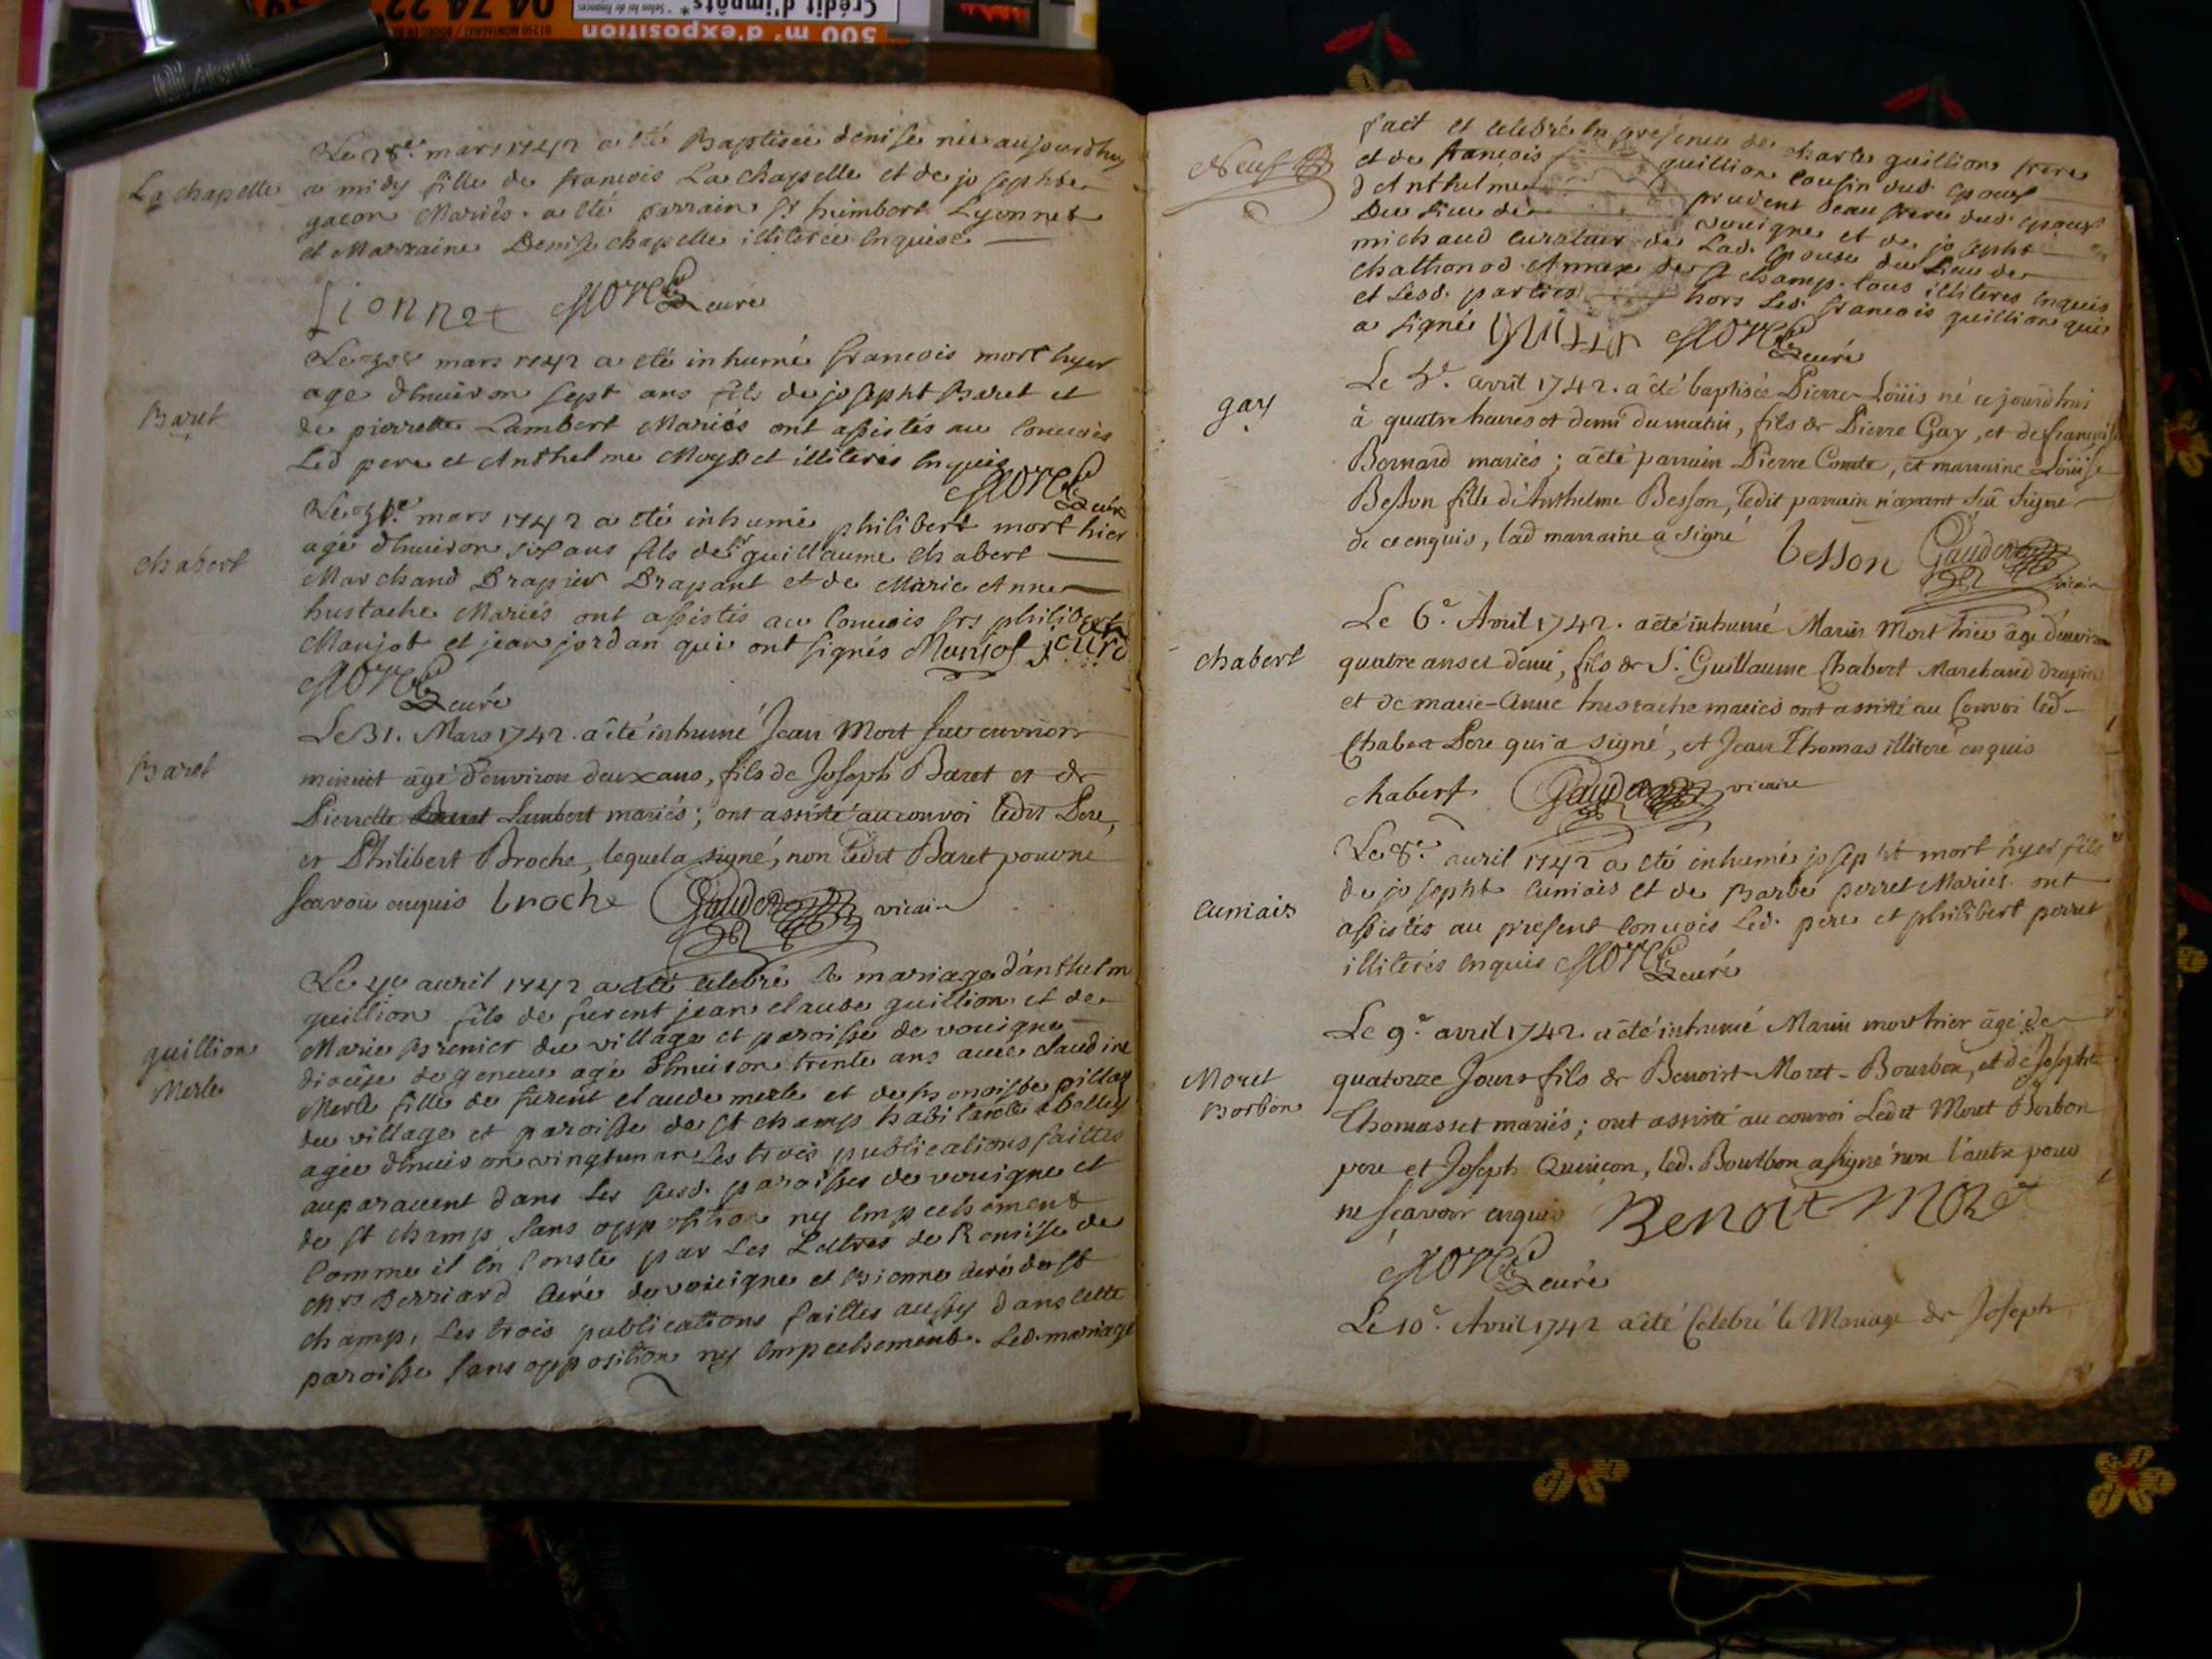 500 m² d'exposition
Crédit d'impôts*
04 74 22
Le 28e. mars 1742 a été Baptisée denise née aujourdhuy
La chapelle
a midy fille de francois La chapelle et de josephte
gacon Mariés. a été parrain Sr. himbert Lyonnet
et Marraine Denise chapelle illiterée Enquise
Lionnet curé
Le 30e mars 1742 a été inhumé francois mort hyer
Baret
age d'Enuiron sept ans fils de josepht Baret et
de pierrette Lambert Mariés ont assistés au Conuois
Led pere et Anthelme illiterés Enquis
curé
Le 31e. mars 1742 a été inhumé philibert mort hier
chabert
agé d'Enuiron six ans fils de sr guillaume chabert
Marchand Drapier Drapant et de Marie Anne
hustache Mariés ont assistés au Conuois srs philibert
Manjot et jean jordan qui ont signés Manjot
curé
Le 31. Mars 1742. a été inhumé Jean Mort sur environ
Baret
minuit âgé d'environ deux ans, fils de Joseph Baret et de
Pierrette Lambert mariés; ont assisté au convoi ledit Pere,
et Philibert Broche, lequel a signé, non ledit Baret pour ne
scavoir enquis broche vicaire
Le 4e auril 1742 a été celebré le mariage d'anthelm
guillion fils de furent jean claude guillion et de
Marie Grenier du village et paroisse de vouigne
guillion
Merle
diocese de geneue agé d'Enuiron trente ans auec claudine
Merle fille de furent claude merle et de
du village et paroisse de st champ habitante a Belley
agée d'Enuiron vingtun an Les trois publications faittes
auparauent dans Les susd. paroisses de vouigne et
de st champ sans opposition ny Empechement
Comme il En Conste par Les Lettres de Remise de
Mrs Berriard Curé de vouigne et curé de st
champ, Les trois publications faittes aussy dans cette
paroisse sans opposition ny Empechement. Led. mariage
Neuf
fait et celebré En presence de charle guillion frere
et de francois guillion cousin dud. epoux
d'Anthelme prudent beau frere dud. epoux
Du Lieu de vouigne et de josepht
michaud curateur de Lad. Epouse du Lieu de
chathonod Annexe de st champ. tous illiteres Enquis
et Lesd. parties hors Led. francois guillion qui
a signé curé
gay
Le 5e. avril 1742. a été baptisé Pierre-Loüis né ce jourd'hui
à quatre heures et demi du matin, fils de Pierre Gay, et de francoise
Bernard mariés; a été parrain Pierre Comte, et marraine Loüise
Besson fille d'Anthelme Besson, ledit parrain n'ayant sçû signer
de ce enquis, lad marraine a signé besson
vicaire
Le 6e. Avril 1742. a été inhumé Marin Mort hier âgé d'environ
chabert
quatre ans et demi, fils de Sr. Guillaume Chabert Marchand drapier
et de marie-Anne hustache mariés ont assisté au Convoi led
Chabert Pere qui a signé, et Jean Thomas illiteré enquis
chabert vicaire
Le 8e. auril 1742 a été inhumé josepht mort hyer fils
Cuniais
de josepht Cuniais et de Barbe perret Mariés ont
assistés au present Conuois Led. pere et philibert perret
illiterés Enquis curé
Le 9e. avril 1742. a été inhumé Marin mort hier âgé de
Moret
Borbon
quatorze Jours fils de Benoist-Moret-Bourbon, et de Josephte
Thomasset mariés; ont assisté au convoi Ledit Moret Borbon
pere et Joseph Quinçon, led. Bourbon a signé non l'autre pour
ne sçavoir enquis Benoit Moret
curé
Le 10e. Avril 1742 a été Celebré le Mariage de Joseph